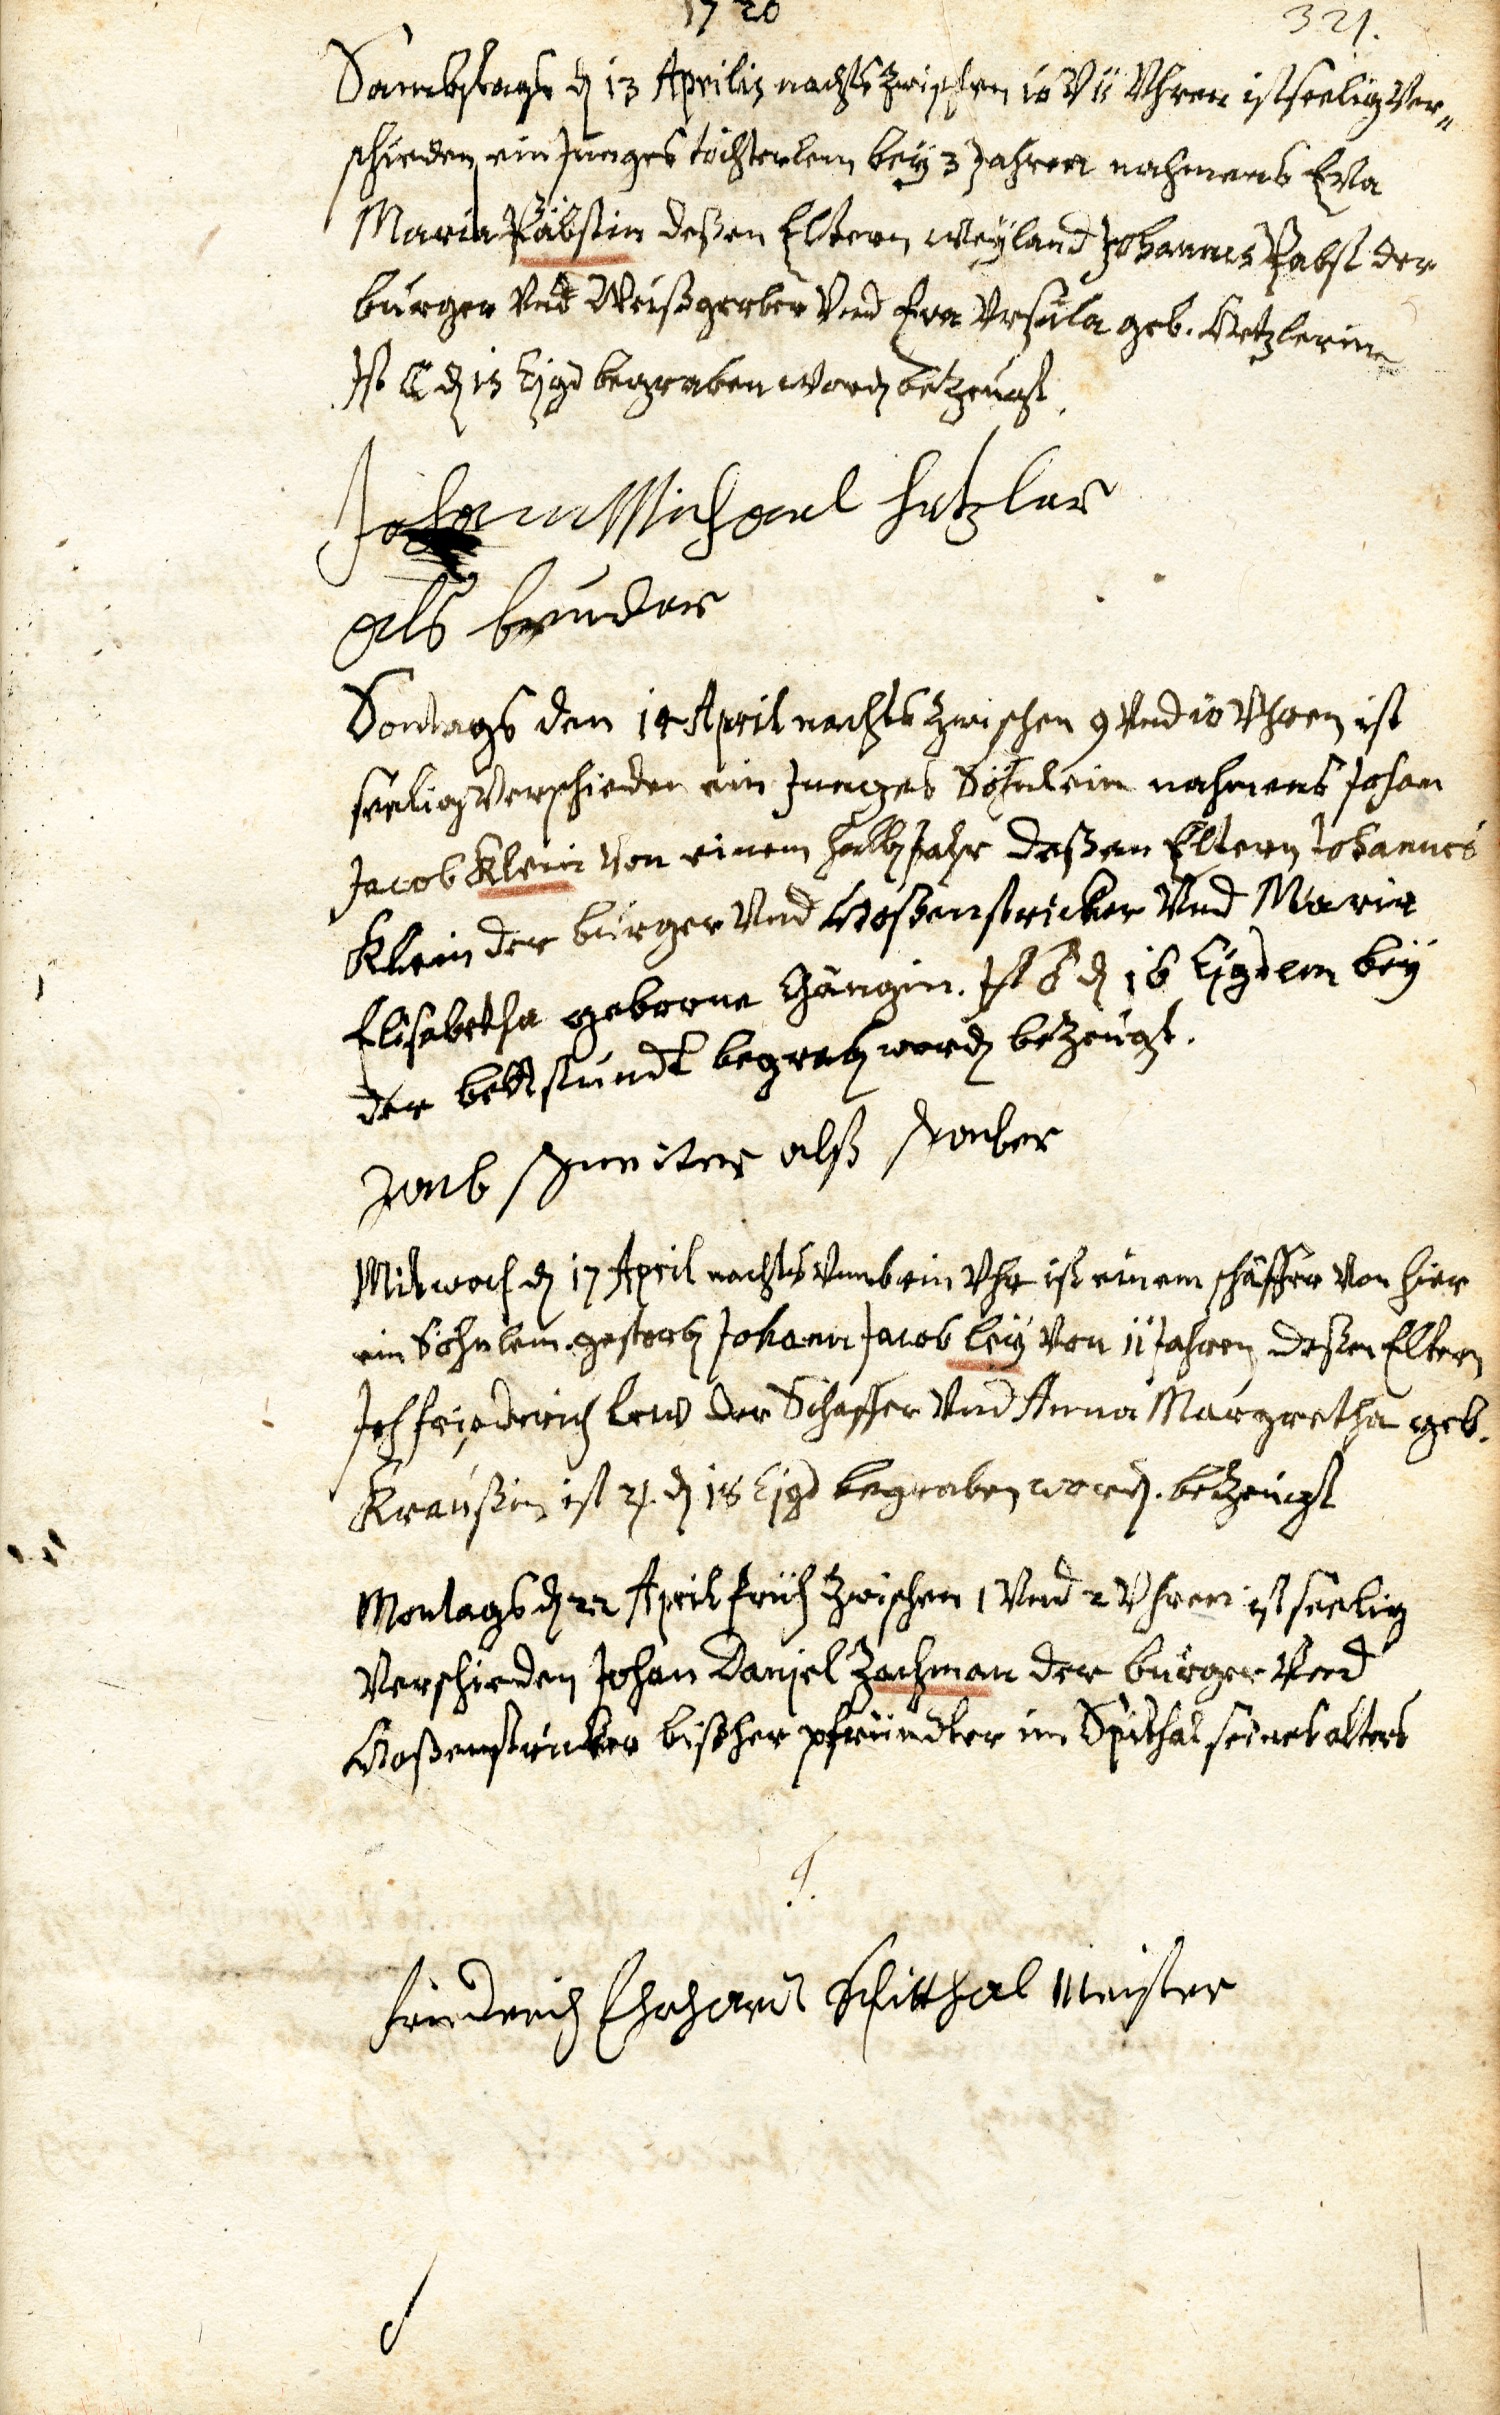 1720
321.
Sambstags d 13 Aprilis nachts zwischen 10 V 11 Uhren ist seelig Ver„
schieden ein Junges töchterlein bey 3 Jahren nahmens Eva
Maria Päbstin deßen Eltern weyland Johannes Pabst der
burger und Weißgerber Und Eva Ursula geb. Hetzlerin
Ist ☾ d 15 Ejgd begraben word bezeugt.
Johann Michael Hetzler
als bruder
Sontags den 14 April nachts zwischen 9 Und 10 Uhren ist
seelig Verschieden ein Junges Söhnlein nahmens Johan
Jacob Klein Von einem halb Jahr deßen Eltern Johannes
Klein der burger Und Hoßenstricker Und Maria
Elisabetha geborne Gängin. Ist ♂ d 16 Ejgdem bey
der bettstundt begrab word bezeugt.
alß
Mitwoch d 17 April nachts Umb ein Uhr ist einem schäffer Von hier
ein Söhnlein gestorb Johann Jacob Leÿ Von 11 Jahren deßen Eltern
Joh friederich Lew der Schaffer Und Anna Margretha geb.
Kraußin ist ♃ d 18 Ejgd begraben word. bezeugt
Montags d 22 April früh zwischen 1 Und 2 Uhren ist seelig
Verschieden Johan Daniel Zachman der burger Und
Hoßenstricker bißher pfründter im Spithal seines alters
friederich Ehrhardt Spitthal Meister